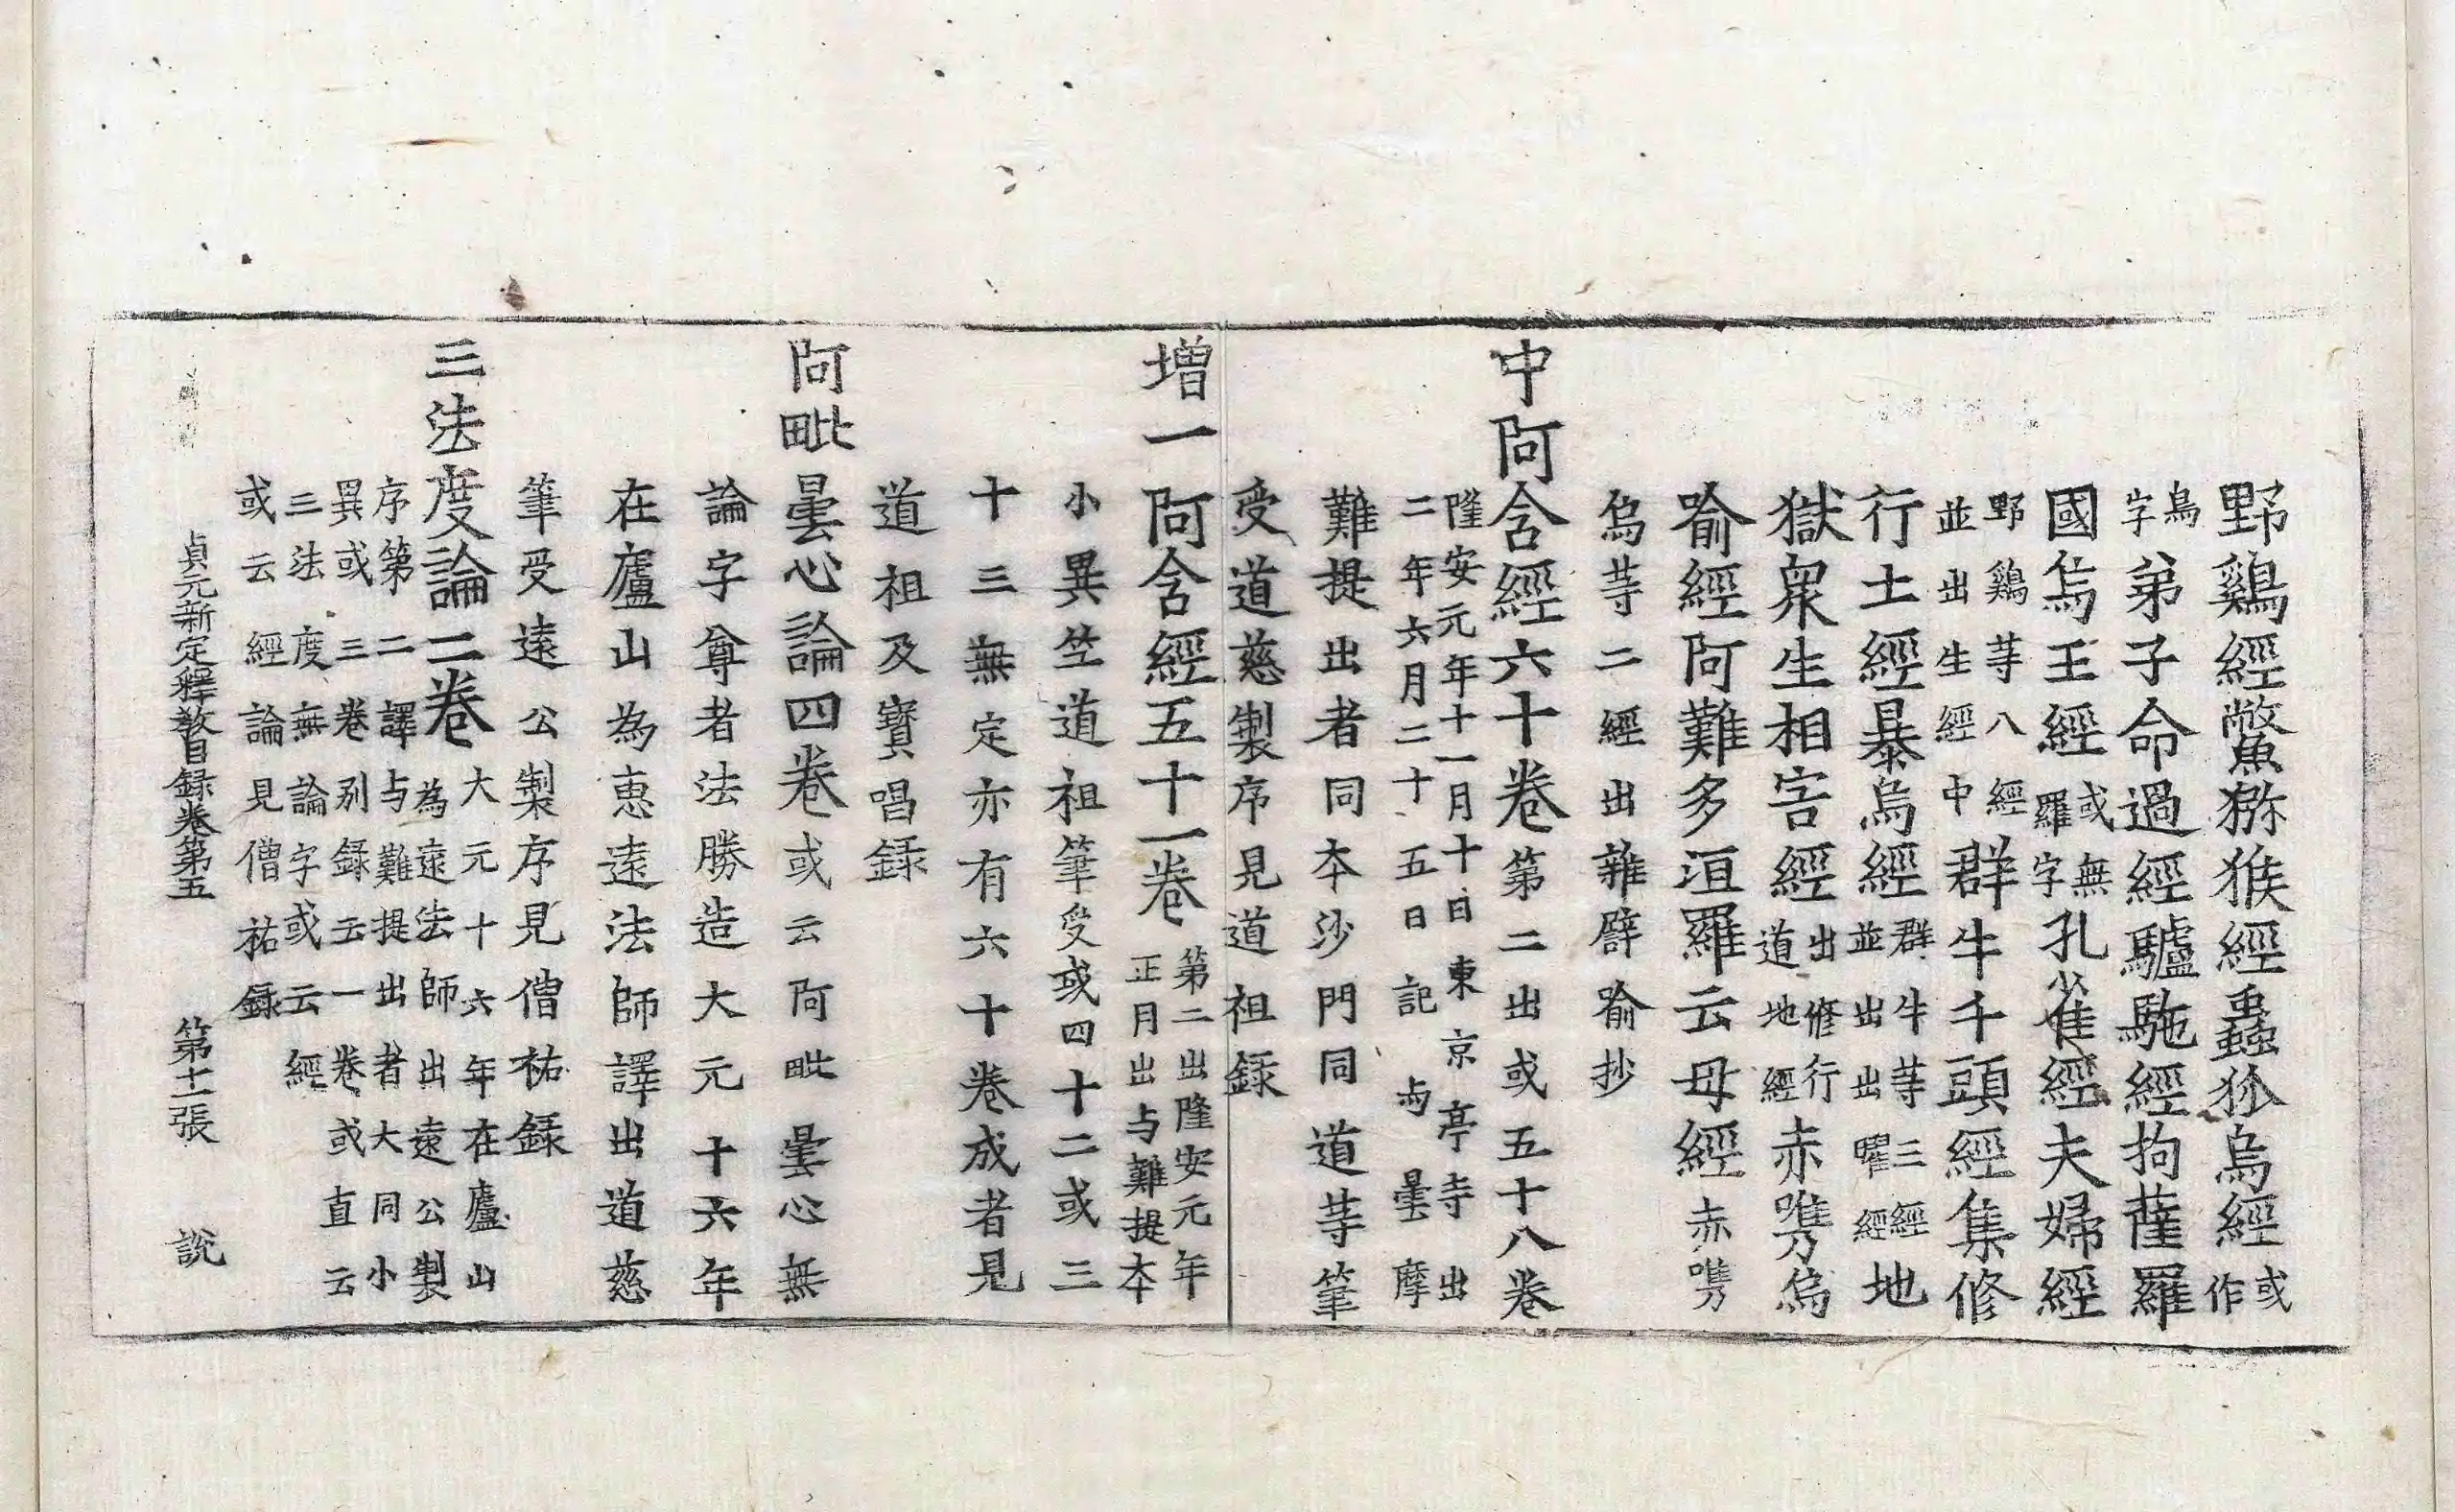 野鷄經鼈獼猴經蠱狐烏經或作
鳥字弟子命過經驢駞經拘薩羅
國烏王經或無羅字孔雀經夫婦經
野鷄等八經並出生經中群牛千頭經集修
行士經暴烏經群牛等三經並出出曜經地
獄衆生相害經出修行道地經赤嘴烏
喻經阿難多洹羅云母經赤嘴
烏等二經出雜譬喻抄
中阿含經六十卷第二出或五十八卷
隆安元年十一月十日東京亭寺出二年六月二十五日記與曇摩
難提出者同本沙門同道等筆
受道慈製序見道祖録
增一阿含經五十一卷第二出隆安元年正月出与難提本
小異竺道祖筆受或四十二或三
十三無定亦有六十卷成者見
道祖及寶唱録
阿毗曇心論四卷或云阿毗曇心無
論字尊者法勝造大元十六年
在廬山為惠遠法師譯出道慈
筆受遠公製序見僧祐録
三法度論二卷大元十六年在廬山為遠法師出遠公製
序第二譯与難提出者大同小異或三卷別録云一卷或直云
三法度無論字或云經或云經論見僧祐録
貞元新定釋教目録卷第五 第十二張 說